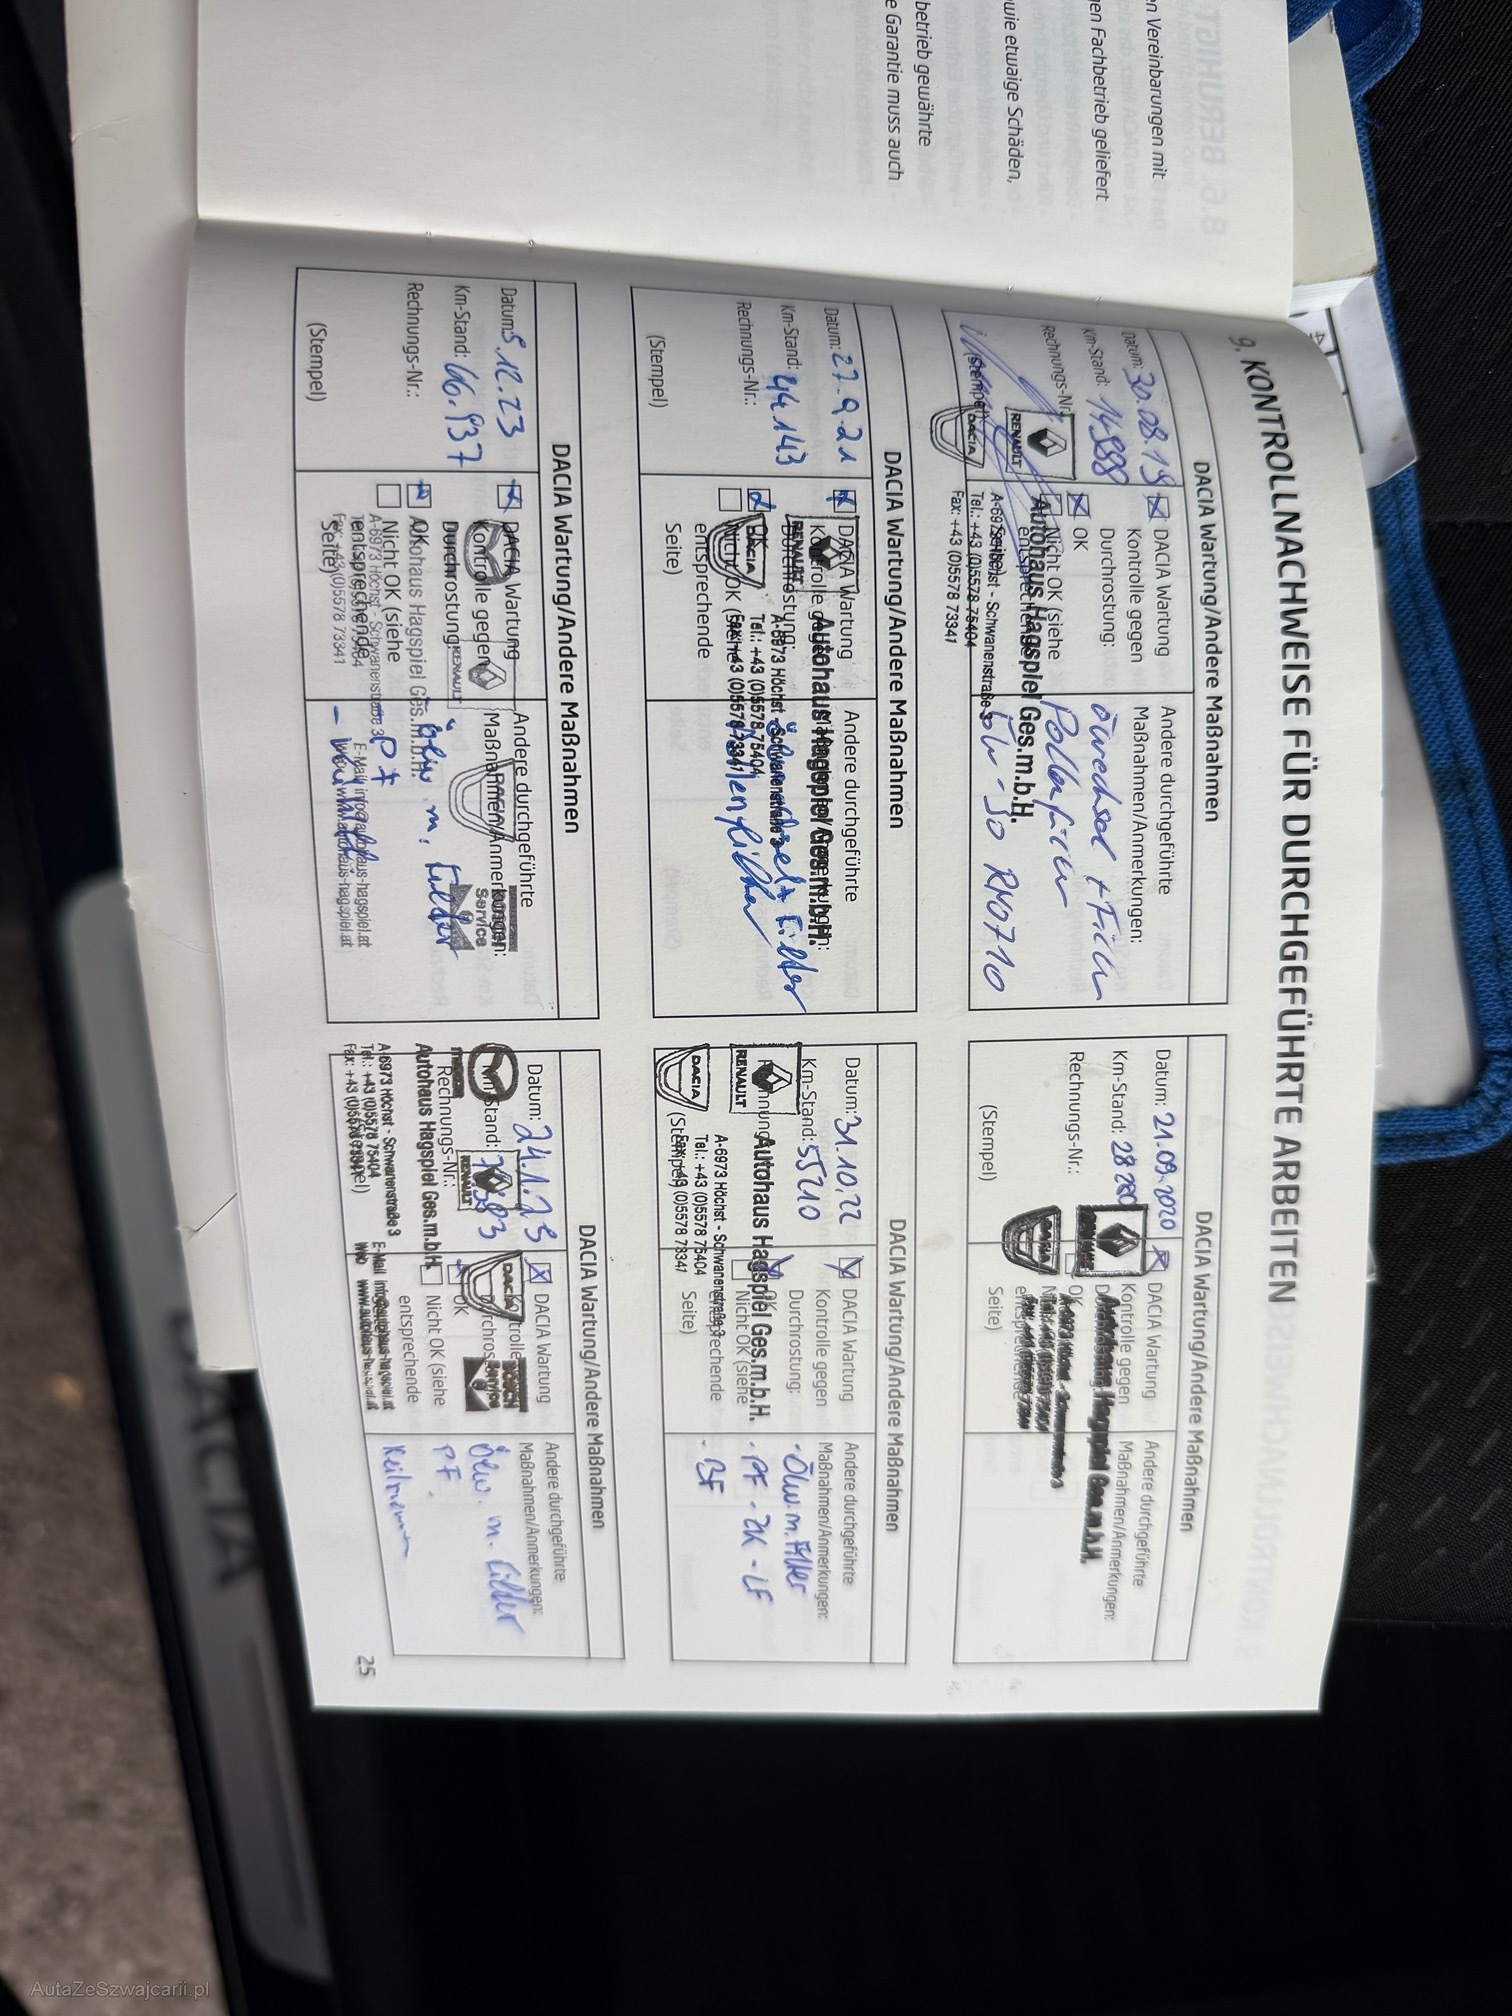 en Vereinbarungen mit
gen Fachbetrieb geliefert
wie etwaige Schäden,
betrieb gewährte
e Garantie muss auch
9. KONTROLLNACHWEISE FÜR DURCHGEFÜHRTE ARBEITEN
DACIA Wartung/Andere Maßnahmen
Datum: 30.08.19
Km-Stand: 14988
Rechnungs-Nr.
(Stempel)
DACIA Wartung
Kontrolle gegen
Durchrostung:
OK
Nicht OK (siehe
Andere durchgeführte
Maßnahmen/Anmerkungen:
Ölwechsel + Filter
Pollenfilter
5W-30 RN0710
RENAULT
DACIA
Autohaus Hagspiel Ges.m.b.H.
A-6973 Höchst - Schwanenstraße 3
Tel.: +43 (0)5578 75404
Fax: +43 (0)5578 73341
DACIA Wartung/Andere Maßnahmen
Datum: 21.09.2020
Km-Stand: 28280
Rechnungs-Nr.:
(Stempel)
DACIA Wartung
Kontrolle gegen
OK
Seite)
Andere durchgeführte
Maßnahmen/Anmerkungen:
DACIA
Autohaus Hagspiel Ges.m.b.H.
DACIA Wartung/Andere Maßnahmen
Datum: 27.9.21
Km-Stand: 44.143
Rechnungs-Nr.:
(Stempel)
DACIA Wartung
Kontrolle gegen
Durchrostung:
OK
Nicht OK (siehe
entsprechende
Seite)
Andere durchgeführte
Ölwechsel + Filter
Pollenfilter
RENAULT
DACIA
Autohaus Hagspiel Ges.m.b.H.
A-6973 Höchst - Schwanenstraße 3
Tel.: +43 (0)5578 75404
Fax: +43 (0)5578 73341
DACIA Wartung/Andere Maßnahmen
Datum: 31.10.22
Km-Stand: 55210
(Stempel)
DACIA Wartung
Kontrolle gegen
Durchrostung:
OK
Nicht OK (siehe
entsprechende
Seite)
Andere durchgeführte
Maßnahmen/Anmerkungen:
- Ölw. m. Filter
- PF - ZK - LF
- BF
RENAULT
DACIA
Autohaus Hagspiel Ges.m.b.H.
A-6973 Höchst - Schwanenstraße 3
Tel.: +43 (0)5578 75404
Fax: +43 (0)5578 73341
DACIA Wartung/Andere Maßnahmen
Datum: 5.12.23
Km-Stand: 66.937
Rechnungs-Nr.:
(Stempel)
DACIA Wartung
Kontrolle gegen
Durchrostung:
OK
Nicht OK (siehe
entsprechende
Seite)
Andere durchgeführte
Maßnahmen/Anmerkungen:
Ölw. m. Filter
PF
RENAULT
DACIA
Service
Autohaus Hagspiel Ges.m.b.H.
A-6973 Höchst - Schwanenstraße 3
Fax: +43 (0)5578 73341
E-Mail: info@autohaus-hagspiel.at
www.autohaus-hagspiel.at
DACIA Wartung/Andere Maßnahmen
Datum:
Km-Stand:
Rechnungs-Nr.:
DACIA Wartung
OK
Nicht OK (siehe
entsprechende
Andere durchgeführte
Maßnahmen/Anmerkungen:
Ölw. m. Filter
PF
Keilriemen
RENAULT
DACIA
BOSCH
Service
Autohaus Hagspiel Ges.m.b.H.
A-6973 Höchst - Schwanenstraße 3
Tel.: +43 (0)5578 75404
Fax: +43 (0)5578 73341
E-Mail info@autohaus-hagspiel.at
Web www.autohaus-hagspiel.at
25
DACIA
AutaZeSzwajcarii.pl